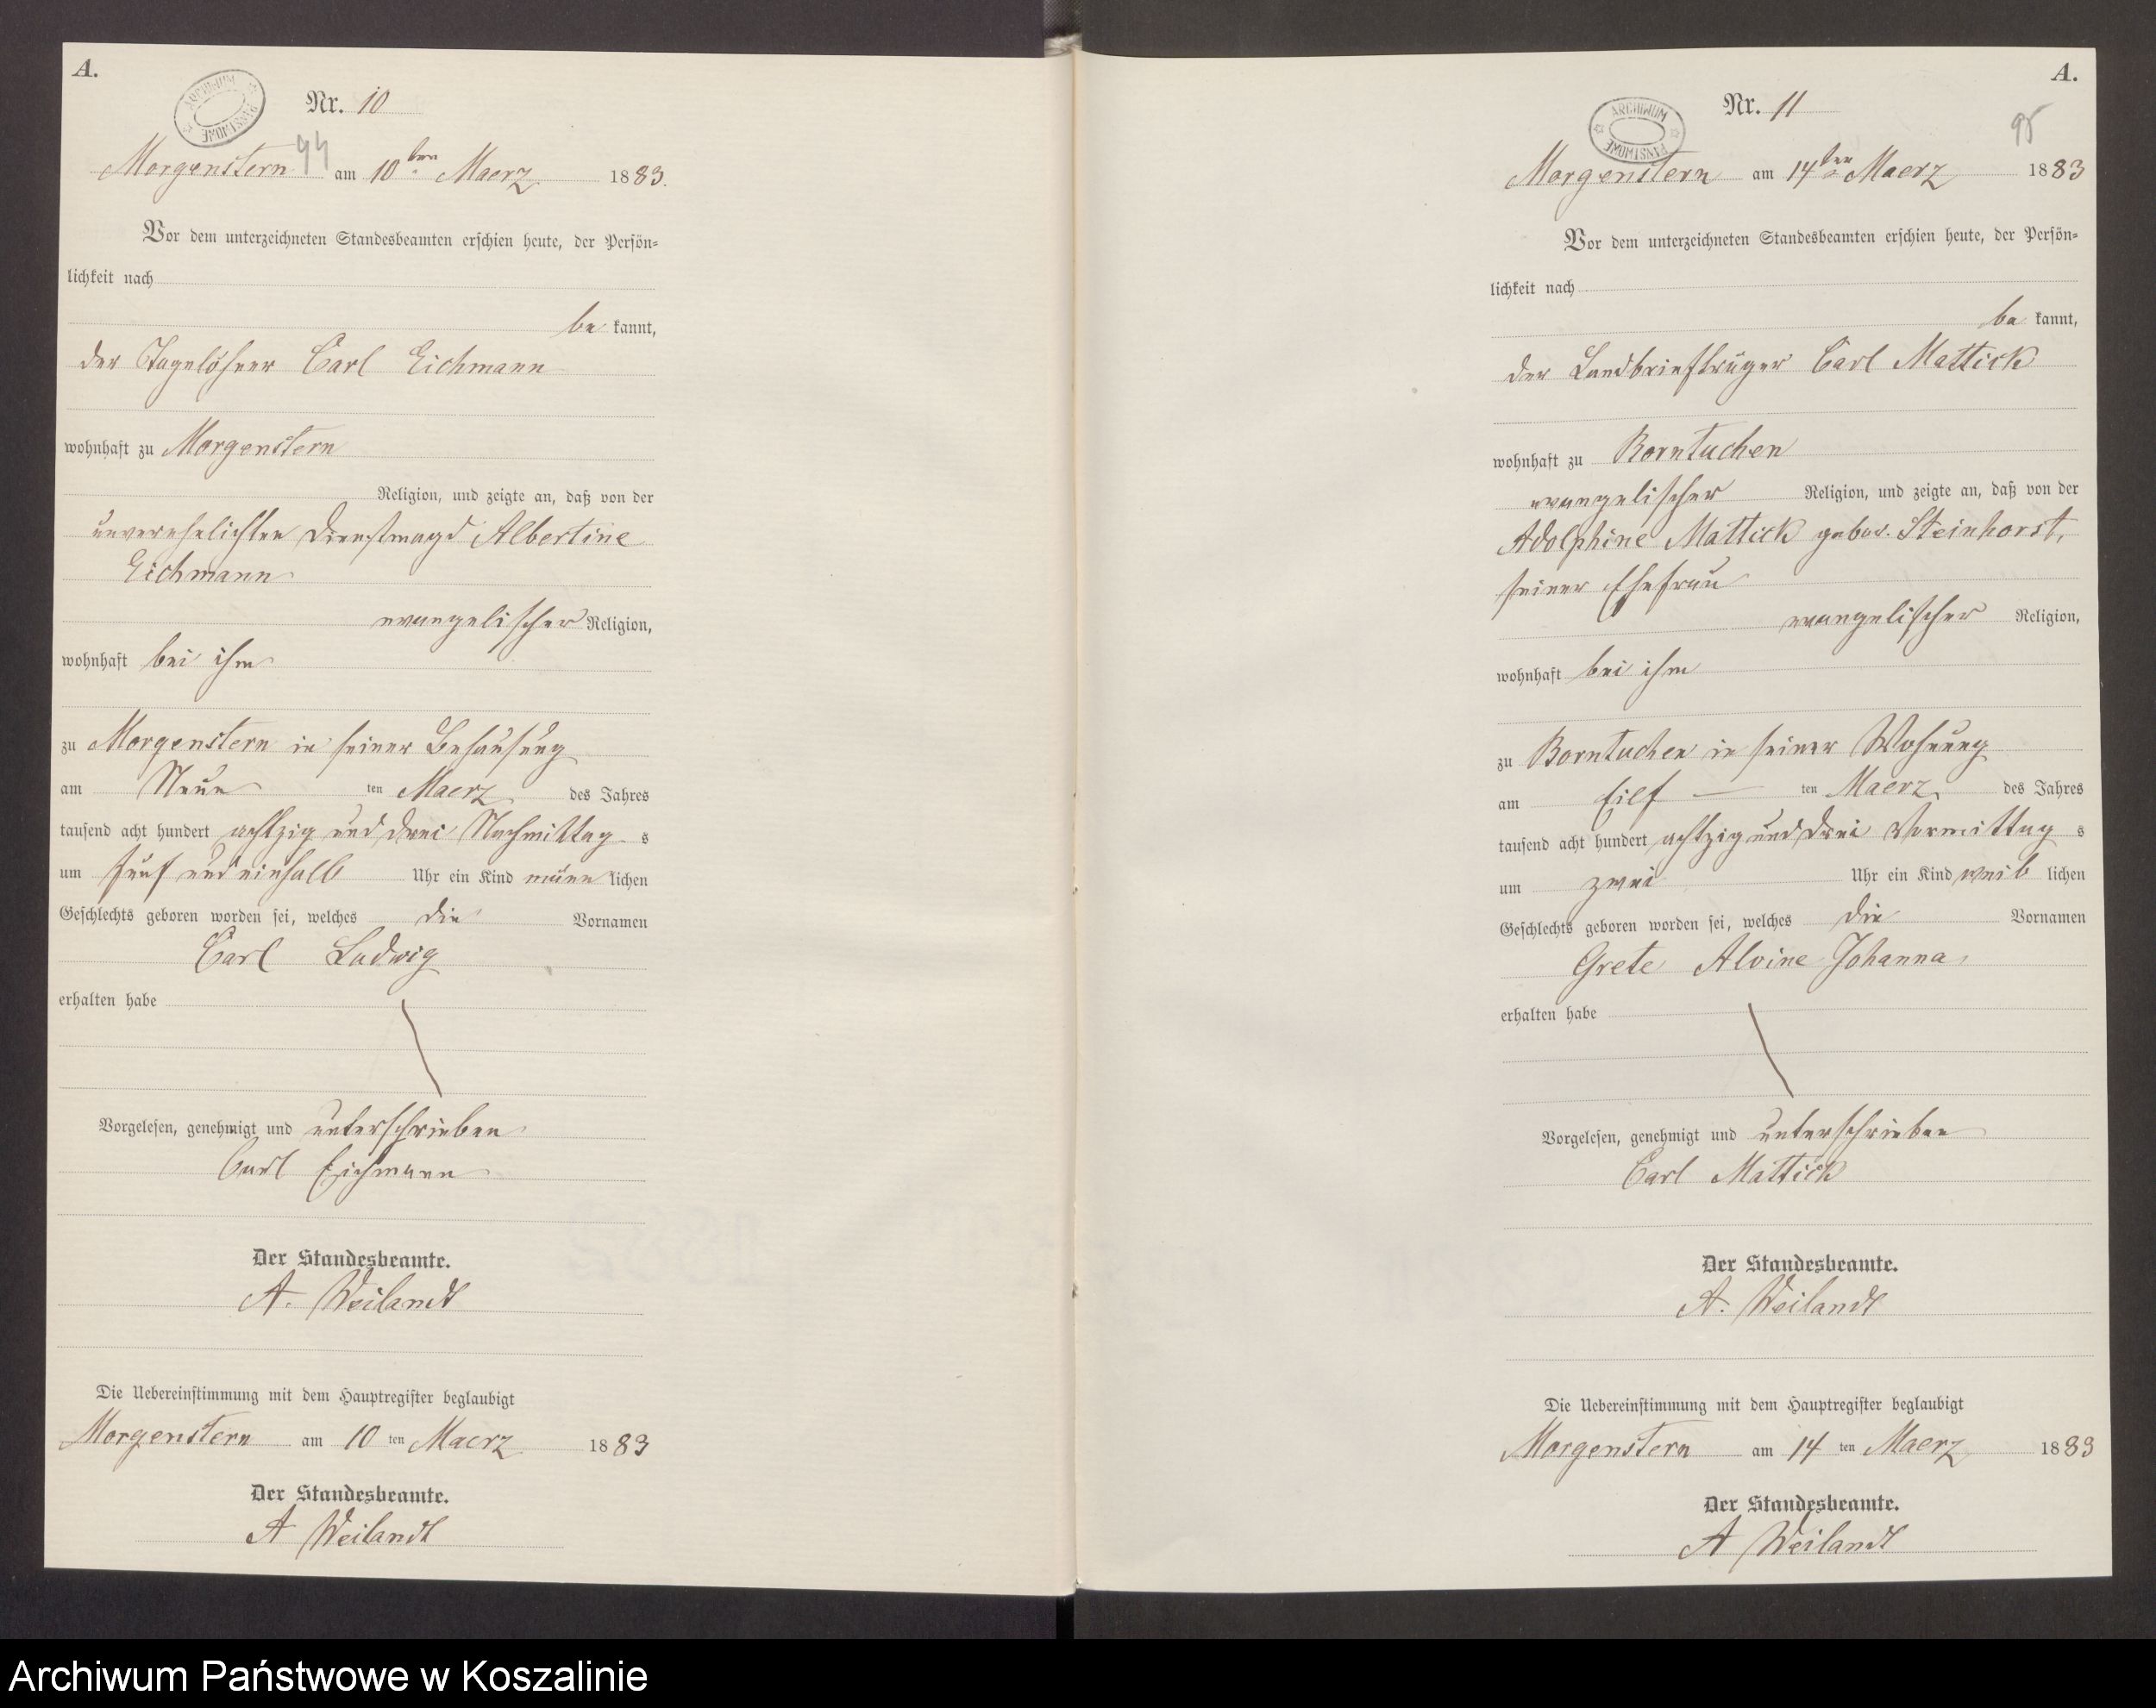 A.
ARCHIWUM PAŃSTWOWE
Nr. 10
94
Morgenstern am 10ten Maerz 1883.
Vor dem unterzeichneten Standesbeamten erschien heute, der Persön-
lichkeit nach
be kannt,
der Tagelöhner Carl Eichmann
wohnhaft zu Morgenstern
Religion, und zeigte an, daß von der
unverehelichten Dienstmagd Albertine
Eichmann
evangelischer Religion,
wohnhaft bei ihm
zu Morgenstern in seiner Behausung
am Neun ten Maerz des Jahres
tausend acht hundert achtzig und drei Nachmittag s
um fünf und einhalb Uhr ein Kind männ lichen
Geschlechts geboren worden sei, welches die Vornamen
Carl Ludwig
erhalten habe
Vorgelesen, genehmigt und unterschrieben
Carl Eichmann
Der Standesbeamte.
A. Weilandt
Die Uebereinstimmung mit dem Hauptregister beglaubigt
Morgenstern am 10 ten Maerz 1883
Der Standesbeamte.
A Weilandt
A.
ARCHIWUM PAŃSTWOWE
Nr. 11
95
Morgenstern am 14ten Maerz 1883
Vor dem unterzeichneten Standesbeamten erschien heute, der Persön-
lichkeit nach
be kannt,
der Landbriefträger Carl Mattick
wohnhaft zu Borntuchen
evangelischer Religion, und zeigte an, daß von der
Adolphine Mattick gebor. Steinhorst,
seiner Ehefrau
evangelischer Religion,
wohnhaft bei ihm
zu Borntuchen in seiner Wohnung
am Eilf ten Maerz des Jahres
tausend acht hundert achtzig und drei Vormittag s
um zwei Uhr ein Kind weib lichen
Geschlechts geboren worden sei, welches die Vornamen
Grete Alvine Johanna
erhalten habe
Vorgelesen, genehmigt und unterschrieben
Carl Mattick
Der Standesbeamte.
A. Weilandt
Die Uebereinstimmung mit dem Hauptregister beglaubigt
Morgenstern am 14 ten Maerz 1883
Der Standesbeamte.
A Weilandt
Archiwum Państwowe w Koszalinie